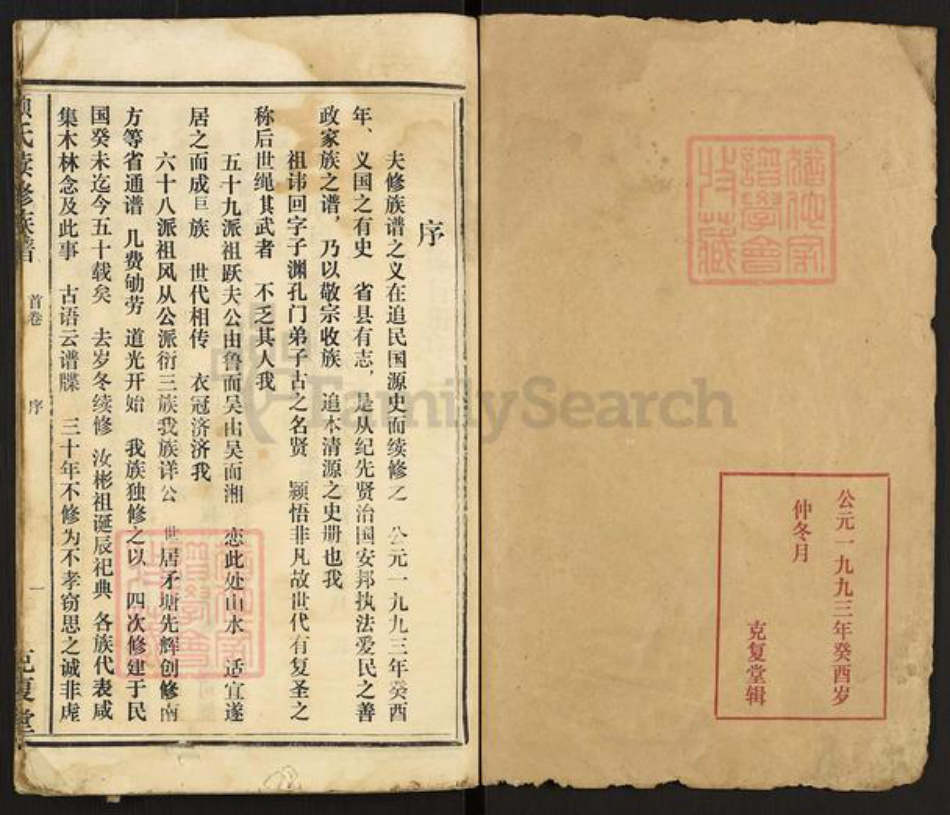 公元一九九三年癸酉岁
仲冬月
克复堂辑
序
夫修族谱之义在追民国源史而续修之 公元一九九三年癸酉
年、义国之有史 省县有志，是从纪先贤治国安邦执法爱民之善
政家族之谱，乃以敬宗收族 追本清源之史册也我
祖讳回字子渊孔门弟子古之名贤 颖悟非凡故世代有复圣之
称后世绳其武者 不乏其人我
五十九派祖跃夫公由鲁而吴由吴而湘 恋此处山水 适宜遂
居之而成巨族 世代相传 衣冠济济我
六十八派祖风从公派衍三族我族详公 世居矛塘先辉创修南
方等省通谱 几费劬劳 道光开始 我族独修之以 四次修建于民
国癸未迄今五十载矣 去岁冬续修 汝彬祖诞辰祀典 各族代表咸
集木林念及此事 古语云谱牒 三十年不修为不孝窃思之诚非虚
氏续修族谱 首卷 序 一 克复堂
FamilySearch